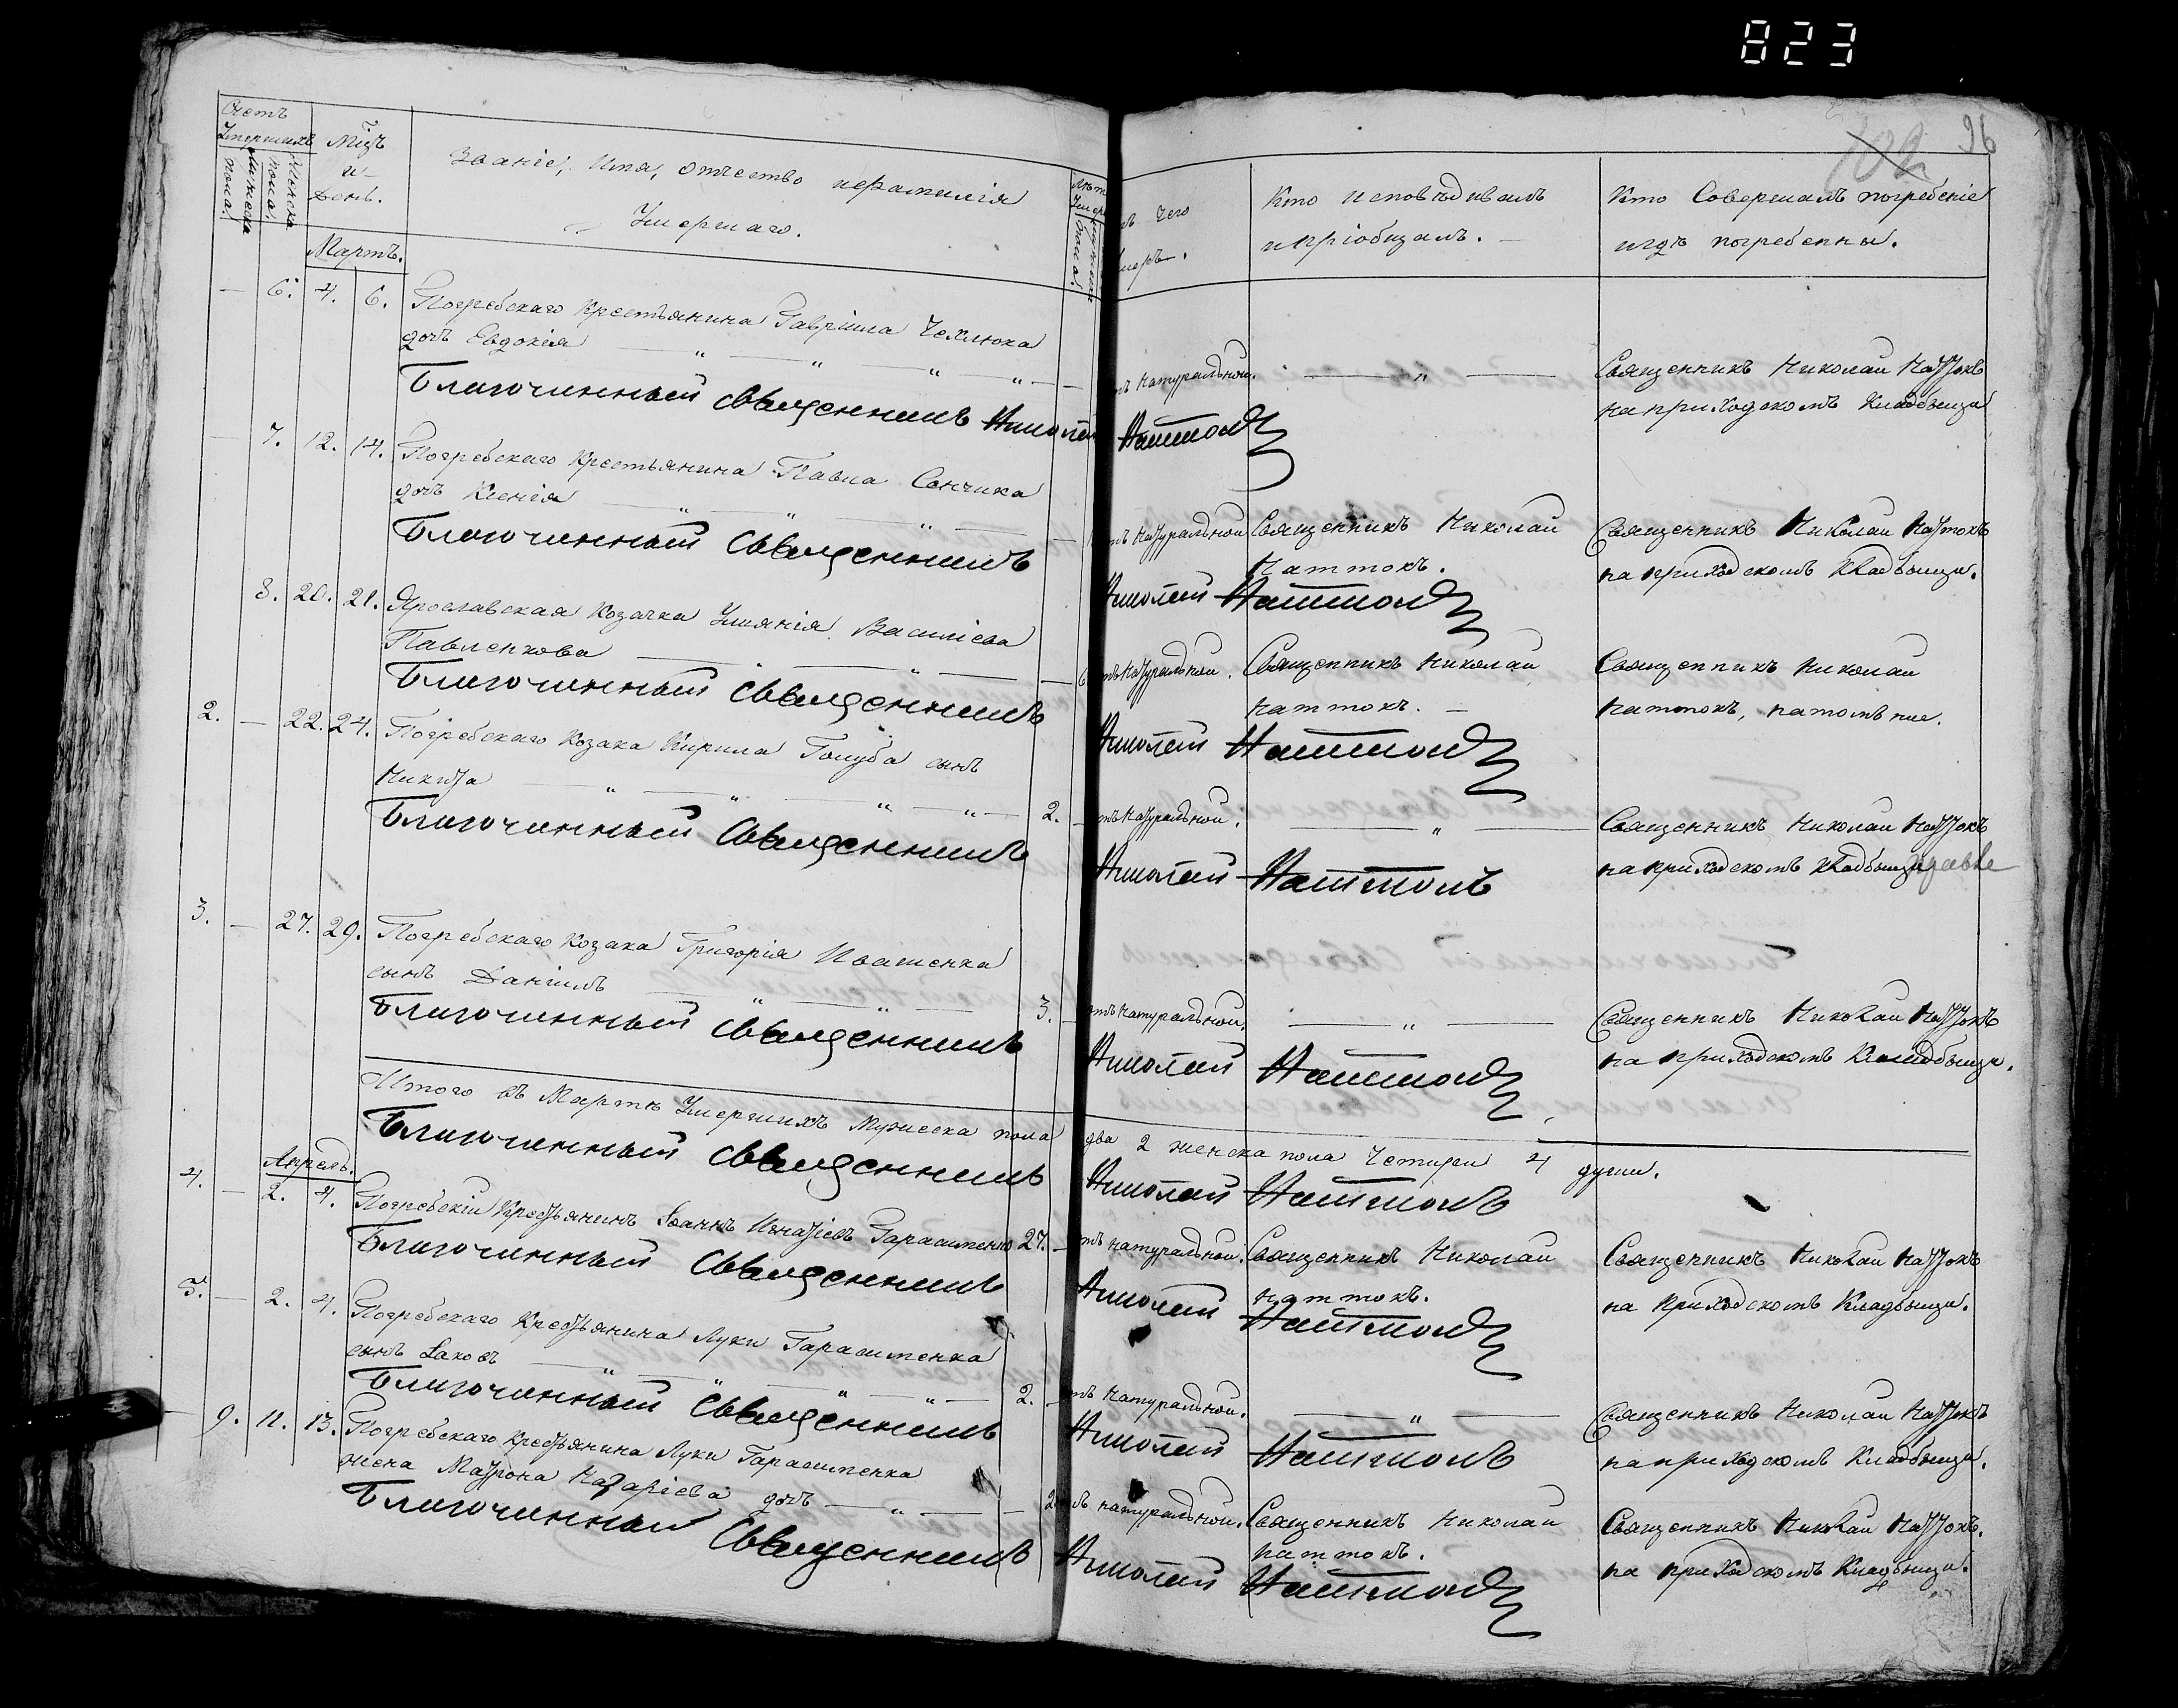 823
96
102
Счетъ
Умершихъ
Мужеска
пола.
Женска
пола.
Мѣцъ
и
День.
Званіе, Имя, отчество и фамилія
Умершаго.
Кто исповѣдивалъ
и пріобщалъ.
Кто Совершалъ погребеніе
и гдѣ погребенны.
Мартъ.
— 6. 4. 6. Погребскаго крестьянина Гавріила
дочь Евдокія — " — " — " — " —
натуральной. — " — Священникъ Николай Наттокъ
на приходскомъ кладбищи
Благочинный Священникъ Николай Наттокъ
— 7. 12. 14. Погребскаго крестьянина Павла Сенчика
дочь Ксенія — " — " — " —
натуральной Священникъ Николай Священникъ Николай Наттокъ
Наттокъ. на приходскомъ кладбищи.
Благочинный Священникъ Николай Наттокъ
8. 20. 21. Ярославская козачка Уліянія Василіева
Павленкова — " — " —
натуральной. Священникъ Николай Священникъ Николай
Наттокъ. — Наттокъ, на томъ же.
Благочинный Священникъ Николай Наттокъ
2. — 22. 24. Погребскаго козака Кирила Голуба сынъ
Никита — " — " — " — " — 2.
натуральной. — " — Священникъ Николай Наттокъ
на приходскомъ кладбищи
Благочинный Священникъ Николай Наттокъ
3. — 27. 29. Погребскаго козака Григорія Ивашенка
сынъ Даніилъ — " — " — 3.
отъ натуральной. — " — Священникъ Николай Наттокъ
на приходскомъ кладбищи.
Благочинный Священникъ Николай Наттокъ
Итого въ Мартѣ Умершихъ Мужеска пола два 2 женска пола Четыри 4 души.
Благочинный Священникъ Николай Наттокъ
Апрель.
4. — 2. 4. Погребскій крестьянинъ Іоаннъ Игнатіевъ Гарасименко 27. —
натуральной. Священникъ Николай Священникъ Николай Наттокъ
Наттокъ. на приходскомъ кладбищи.
Благочинный Священникъ Николай Наттокъ
5. — 2. 4. Погребскаго крестьянина Луки Гарасименка
сынъ Іаковъ — " — " — " — " — 2. —
натуральной. — " — Священникъ Николай Наттокъ
на приходскомъ кладбищи.
Благочинный Священникъ Николай Наттокъ
— 9. 11. 13. Погребскаго крестьянина Луки Гарасименка
жена Матрона Назаріева дочь — " — —
натуральной. Священникъ Николай Священникъ Николай Наттокъ.
Наттокъ. на приходскомъ кладбищи.
Благочинный Священникъ Николай Наттокъ